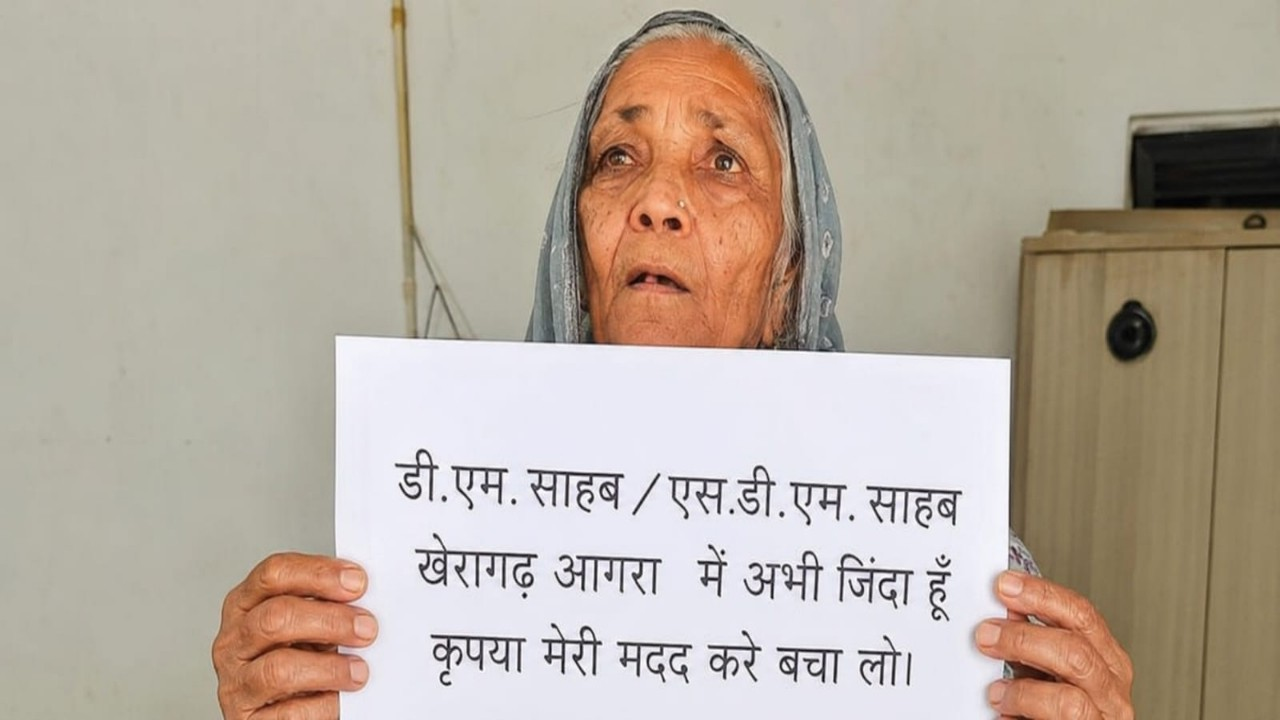 डी.एम. साहब / एस.डी.एम. साहब
खेरागढ़ आगरा में अभी जिंदा हूँ
कृपया मेरी मदद करे बचा लो।